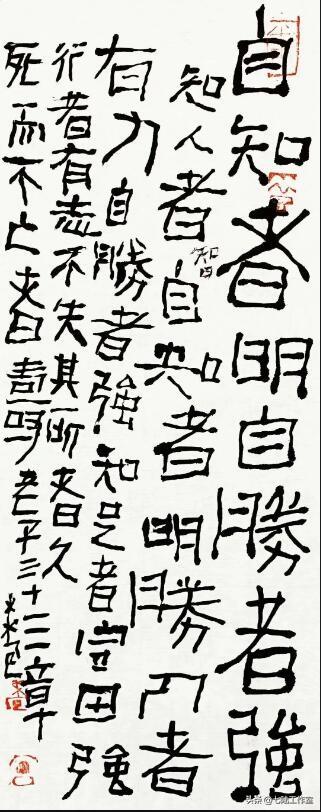 自知者明自勝者強
知人者智自知者明勝人者
有力自勝者強知足者富強
行者有志不失其所者久
死而不亡者壽 老子三十三章
头条 工作室